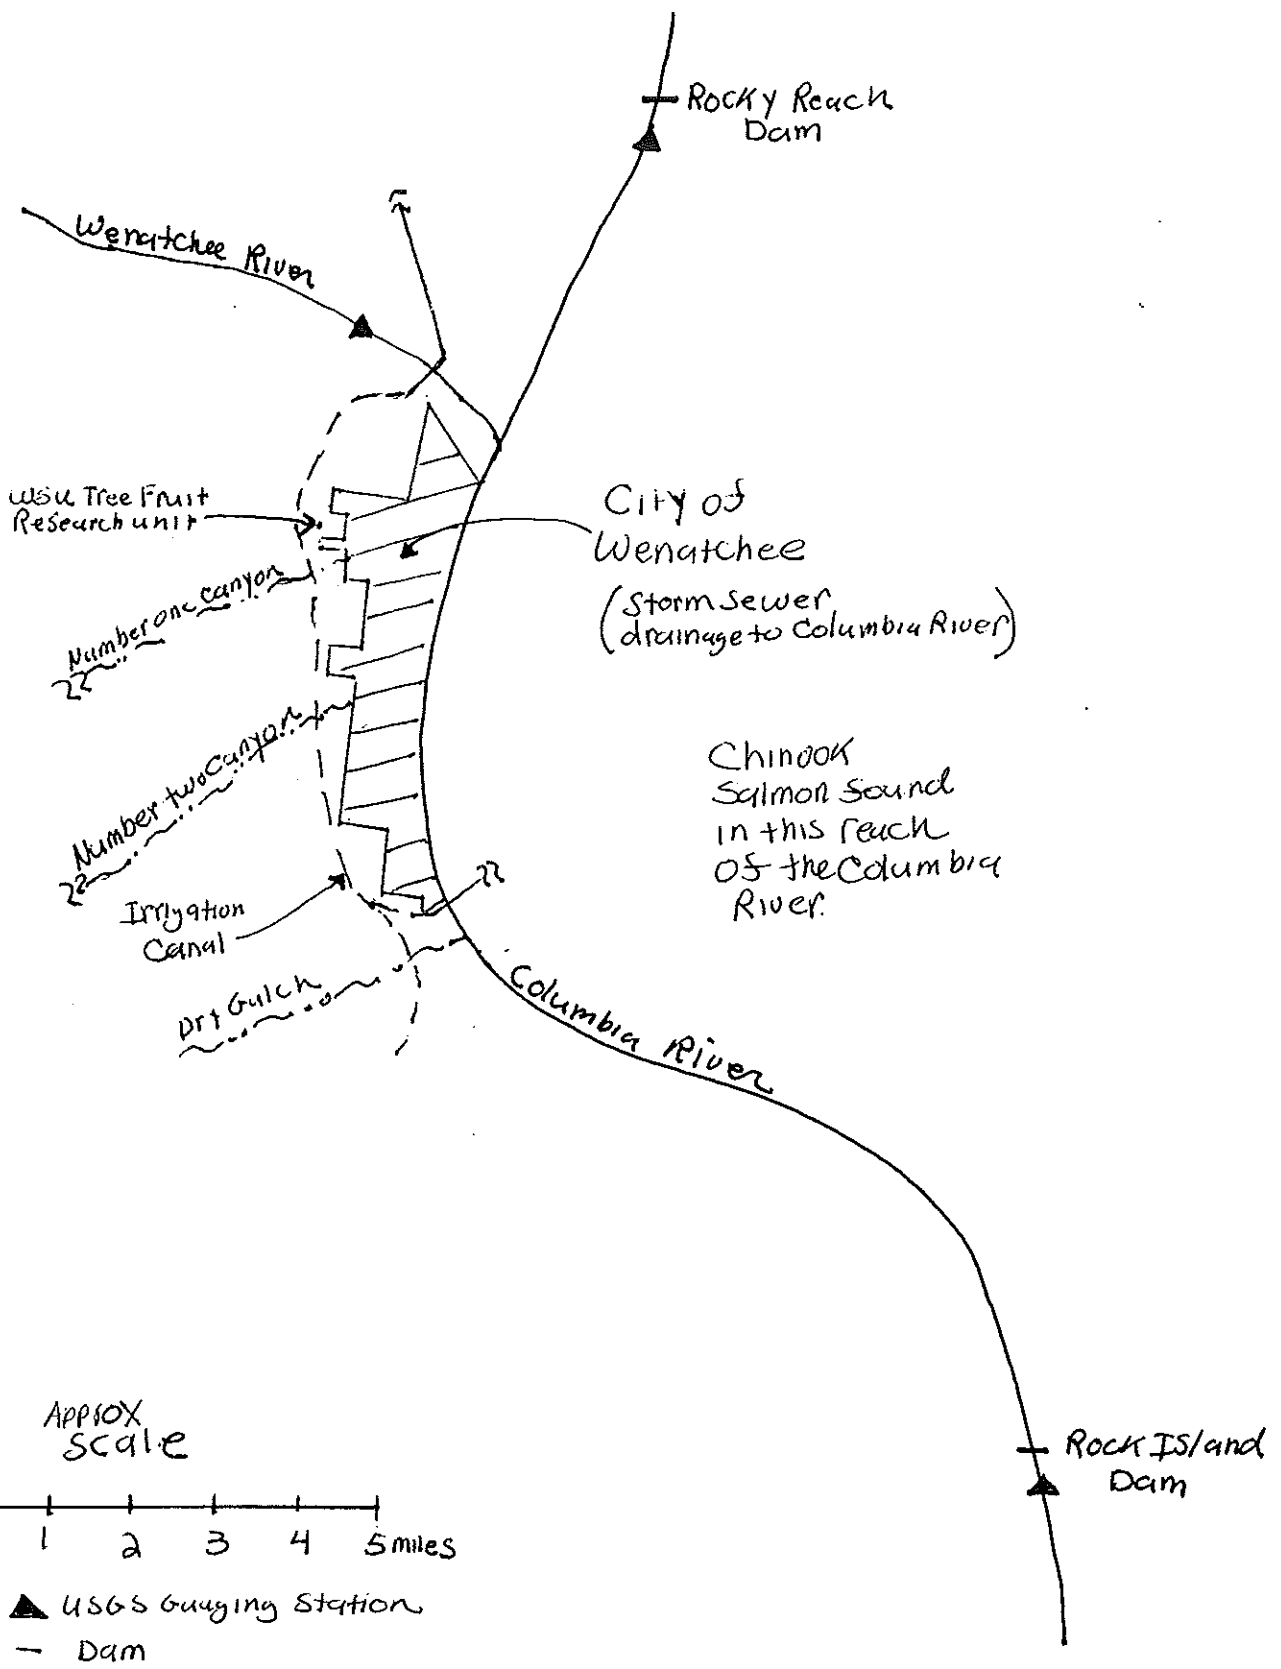 Rocky Reach
Dam
Wenatchee River
WSU Tree Fruit
Research unit
City of
Wenatchee
(Storm sewer
drainage to Columbia River)
Number one canyon
Number two Canyon
Chinook
Salmon found
in this reach
of the Columbia
River.
Irrigation
Canal
Dry Gulch
Columbia River
Approx
scale
1 2 3 4 5 miles
Rock Island
Dam
USGS Guaging Station
Dam